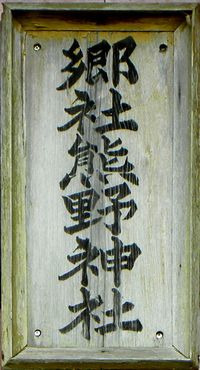 郷社熊野神社